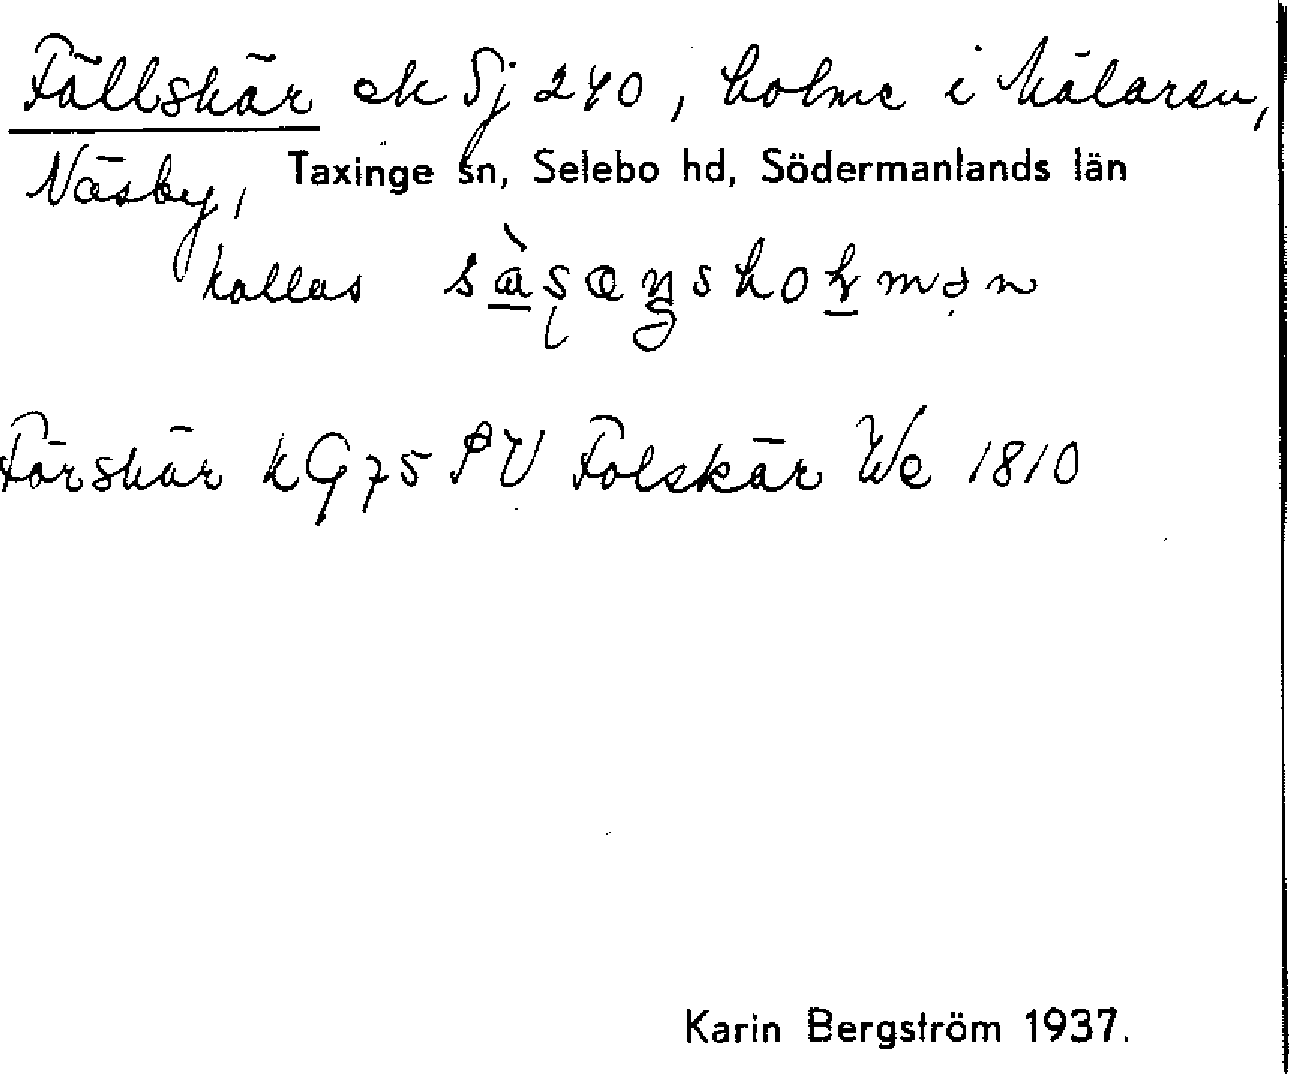 Fällskär ek Sj 240, holme i Mälaren,
Näsby, Taxinge sn, Selebo hd, Södermanlands län
kallas
Förskär kG 75 PV Folskär We 1810
Karin Bergström 1937.